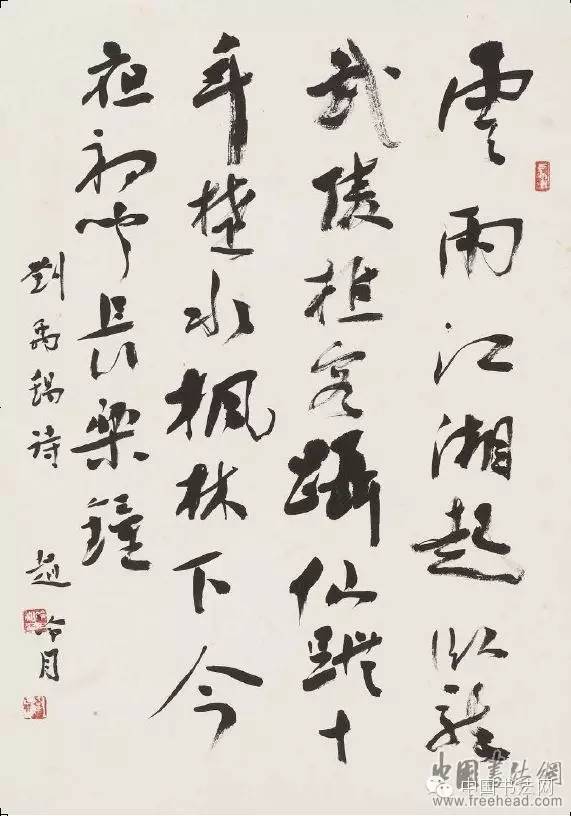 雲雨江湘起臥龍
武陵樵客躡仙蹤十
年楚水楓林下今
夜初聞長樂鐘
劉禹錫詩 趙冷月
中國書法網
中国书法网
www.freehead.com